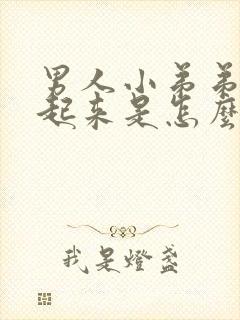 男人小弟弟
起来是怎麼
我是燈盞